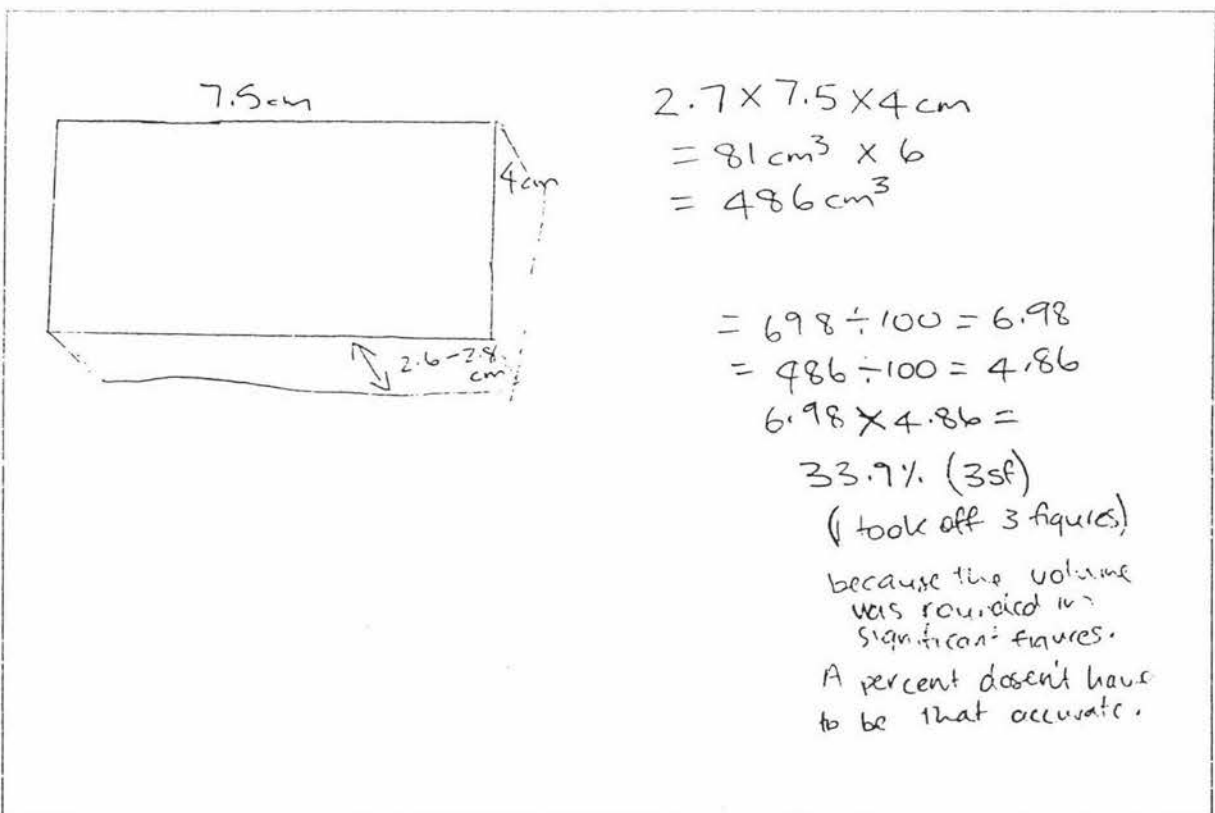 7.5cm
4cm
2.6-2.8
cm
2.7 × 7.5 × 4 cm
= 81 cm³ × 6
= 486 cm³
= 698 ÷ 100 = 6.98
= 486 ÷ 100 = 4.86
6.98 × 4.86 =
33.9% (3sf)
(I took off 3 figures)
because the volume
was rounded in
significant figures.
A percent dosen't have
to be that accurate.